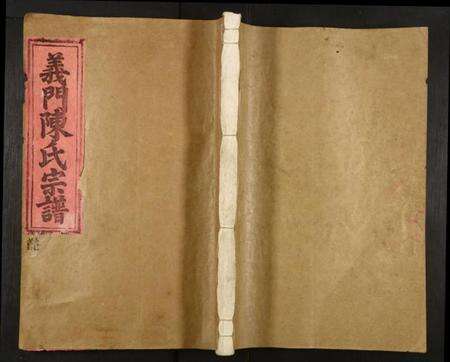 義門陳氏宗譜